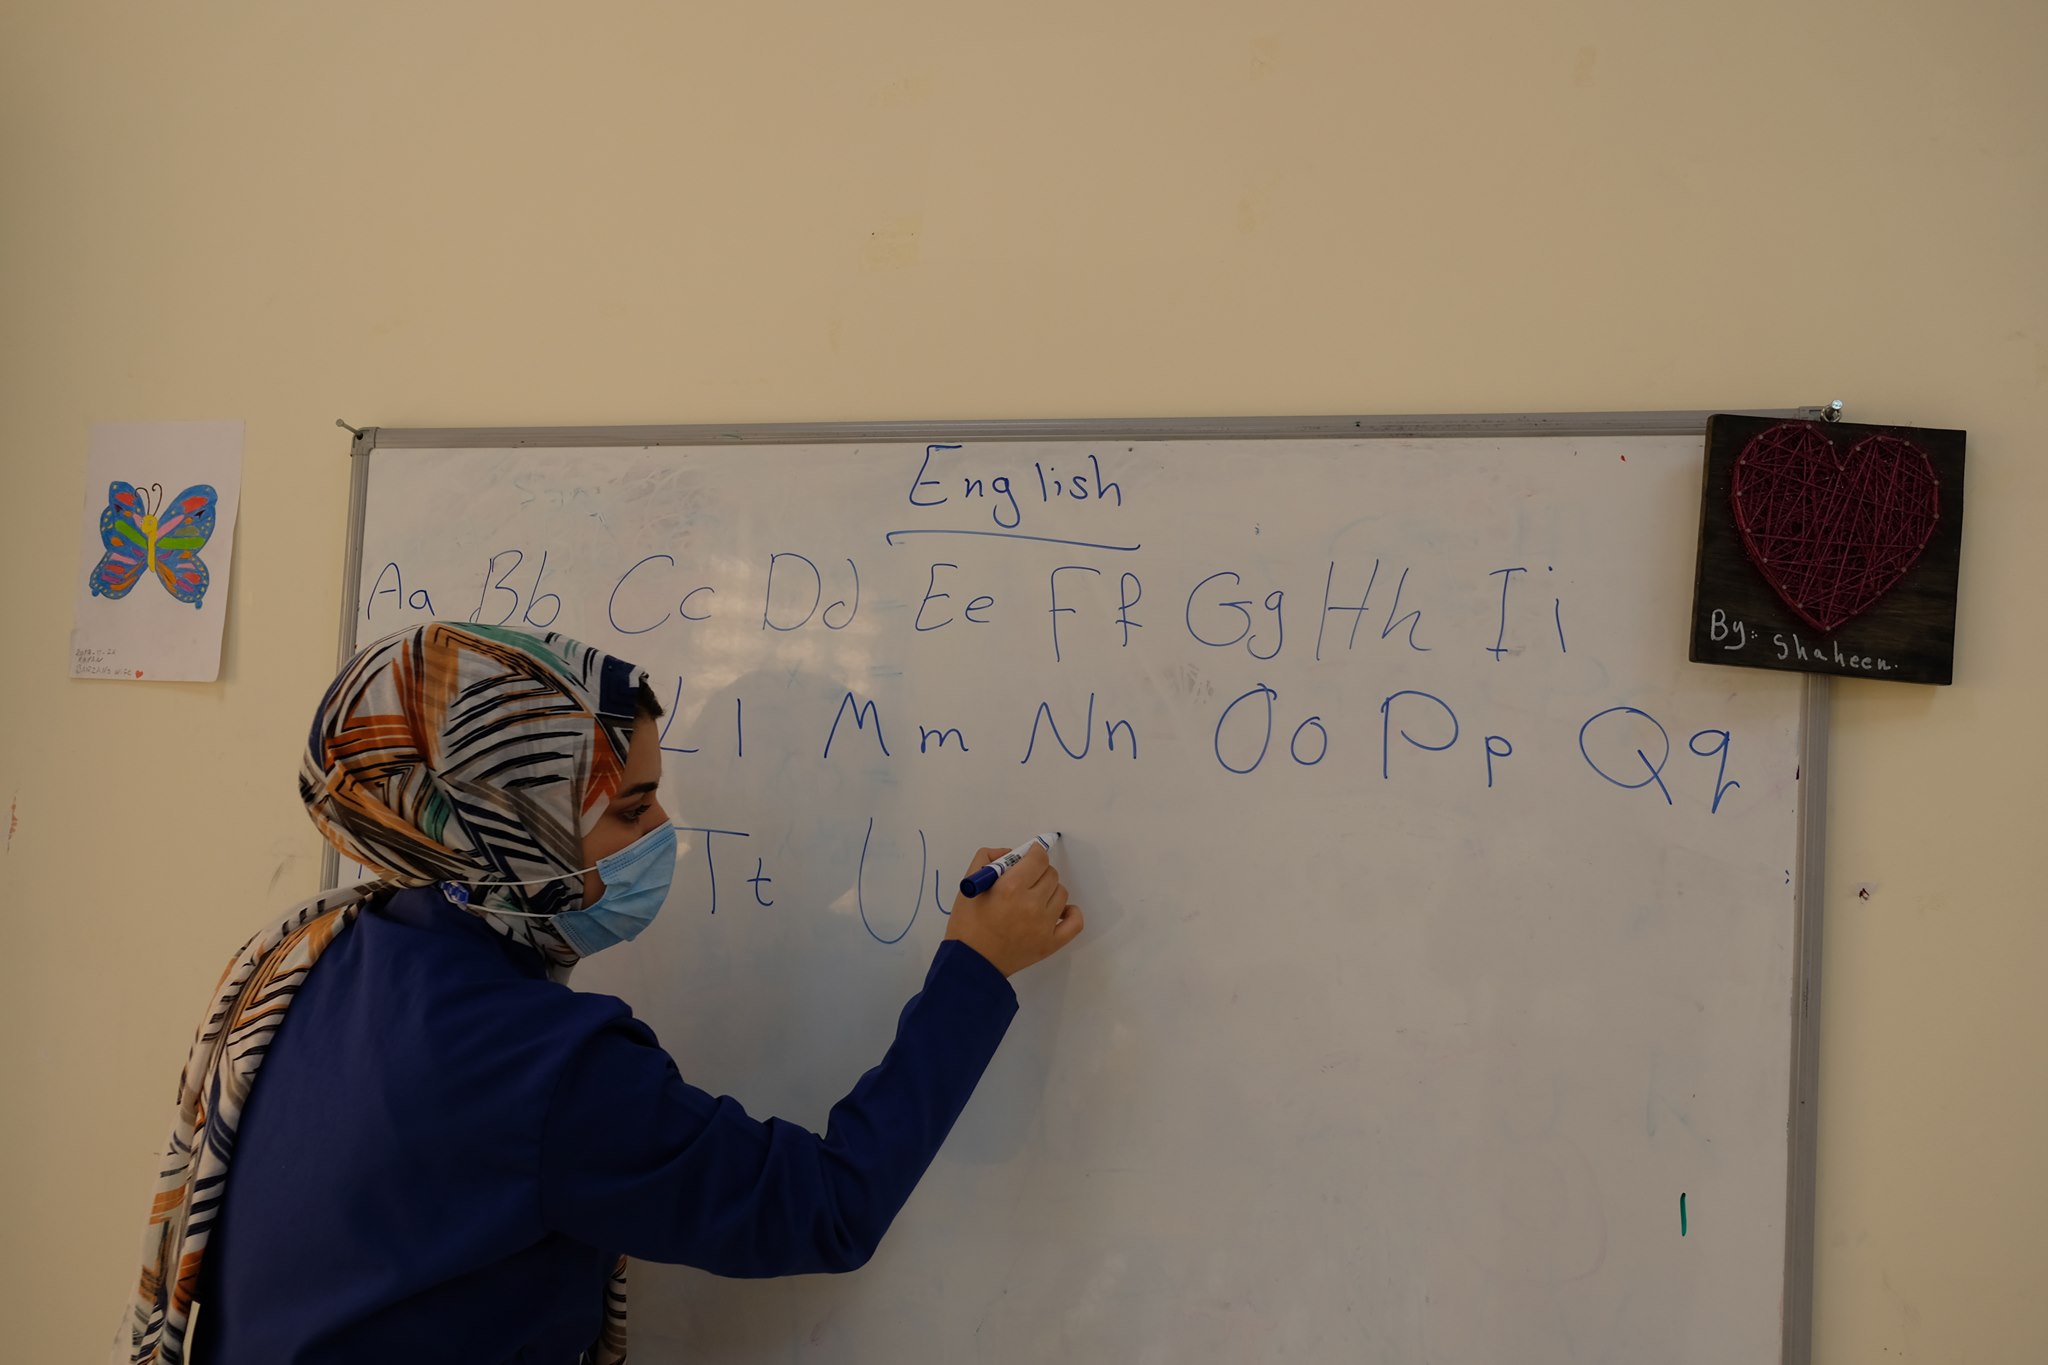 English
Aa Bb Cc Dd Ee Ff Gg Hh Ii
Ll Mm Nn Oo Pp Qq
Tt Uu
By: Shaheen.